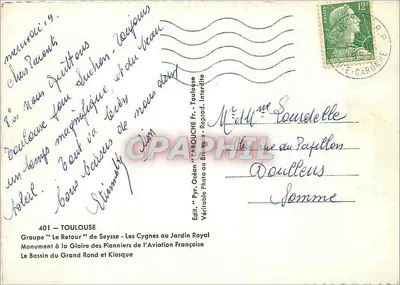 mercredi 9.
Chers Parents
nous quittons
Toulouse pour Luchon. Toujours
un temps magnifique, et du beau
soleil. Tout va bien
bons baisers de nous deux
12F
Mr Mme Lourdelle
rue du Papillon
Doullens
Somme
Edit. "Pyr. Océan" LABOUCHE Fr. - Toulouse
Véritable Photo au Bromure - Reprod. Interdite
PICCARPHIL
401 — TOULOUSE
Groupe "Le Retour" de Seysse - Les Cygnes au Jardin Royal
Monument à la Gloire des Pionniers de l'Aviation Française
Le Bassin du Grand Rond et Kiosque